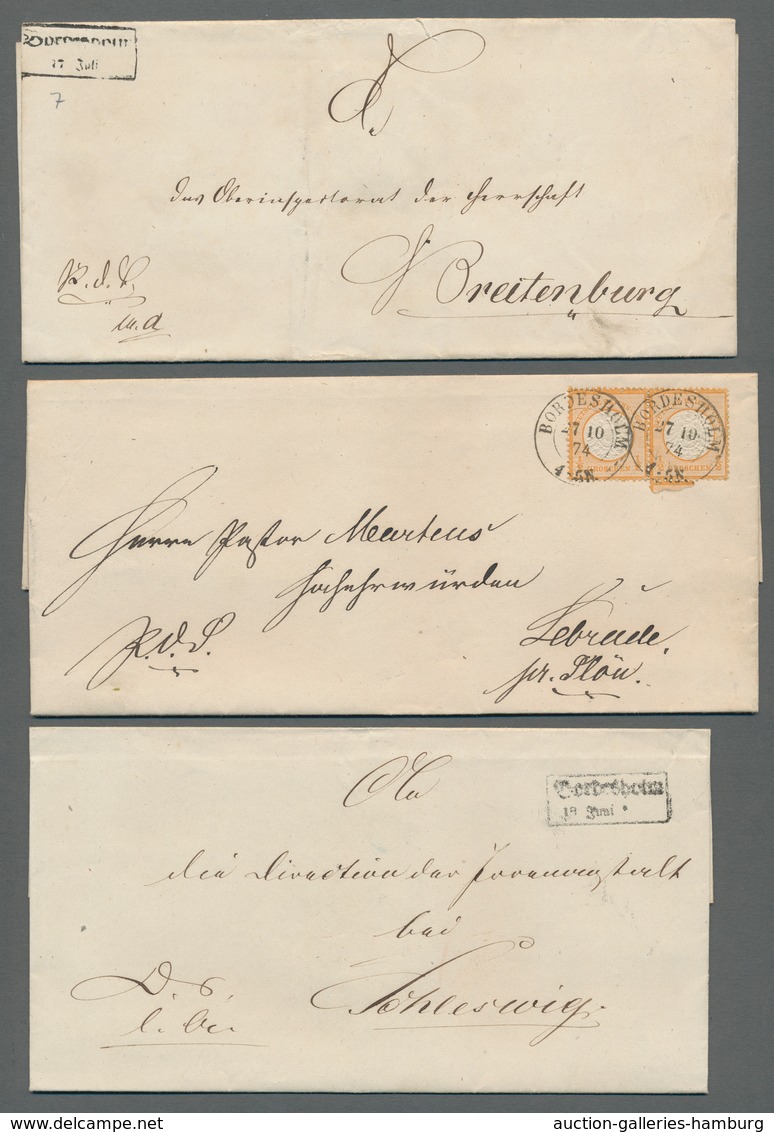 Bordesholm
17 Juli
7
das Oberinspectorat der Herrschaft
Breitenburg
BORDESHOLM
27 10
74
4-5N.
BORDESHOLM
27 10
74
4-5N.
GROSCHEN
GROSCHEN
Herrn Pastor Martens
Hochehrwürden
P.d.S.
Lebrade
pr. Plön.
Bordesholm
18 Juni
An
die Direction der Irrenanstalt
bei
Schleswig.
D. S.
auction-galleries-hamburg